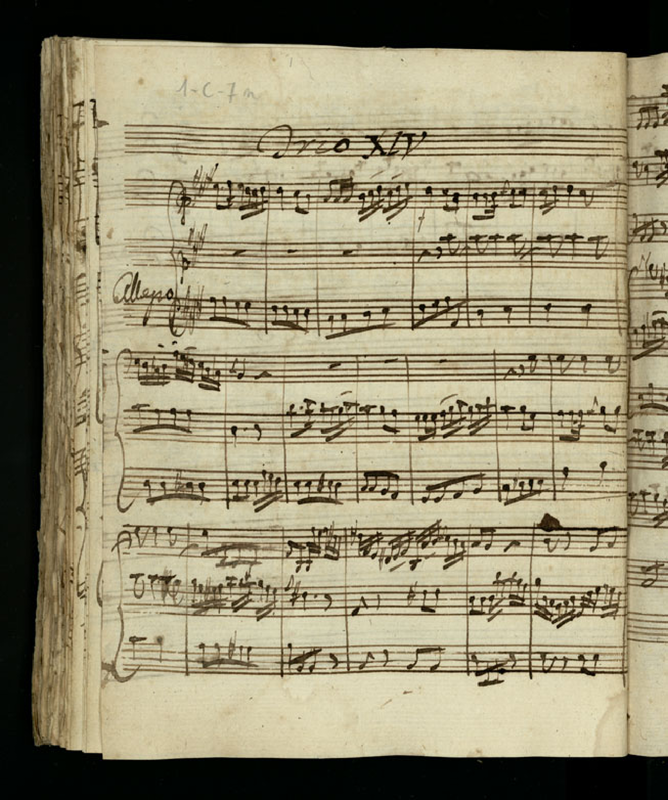 1-C-7
Trio XIV
Allegro